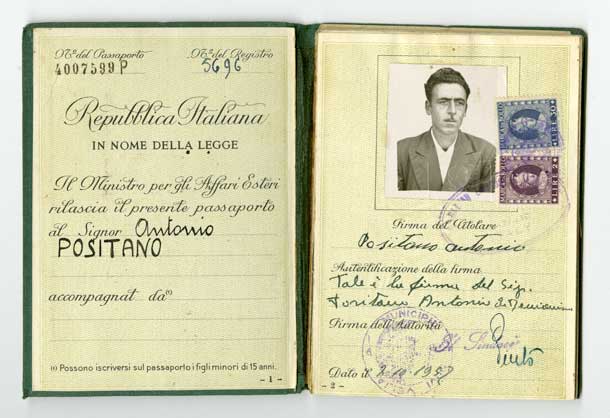 N.º del Passaporto
4007599 P
N.º del Registro
5696
Repubblica Italiana
IN NOME DELLA LEGGE
Il Ministro per gli Affari Esteri
rilascia il presente passaporto
al Signor Antonio
POSITANO
accompagnat da(1)
(1) Possono iscriversi sul passaporto i figli minori di 15 anni.
- 1 -
LIRE 50
LIRE 2
Firma del Titolare
Positano Antonio
Autentificazione della firma
Tale è la firma del Sig.
Positano Antonio di
Firma dell'Autorità
Il Sindaco
MUNICIPIO
Dato il
- 2 -